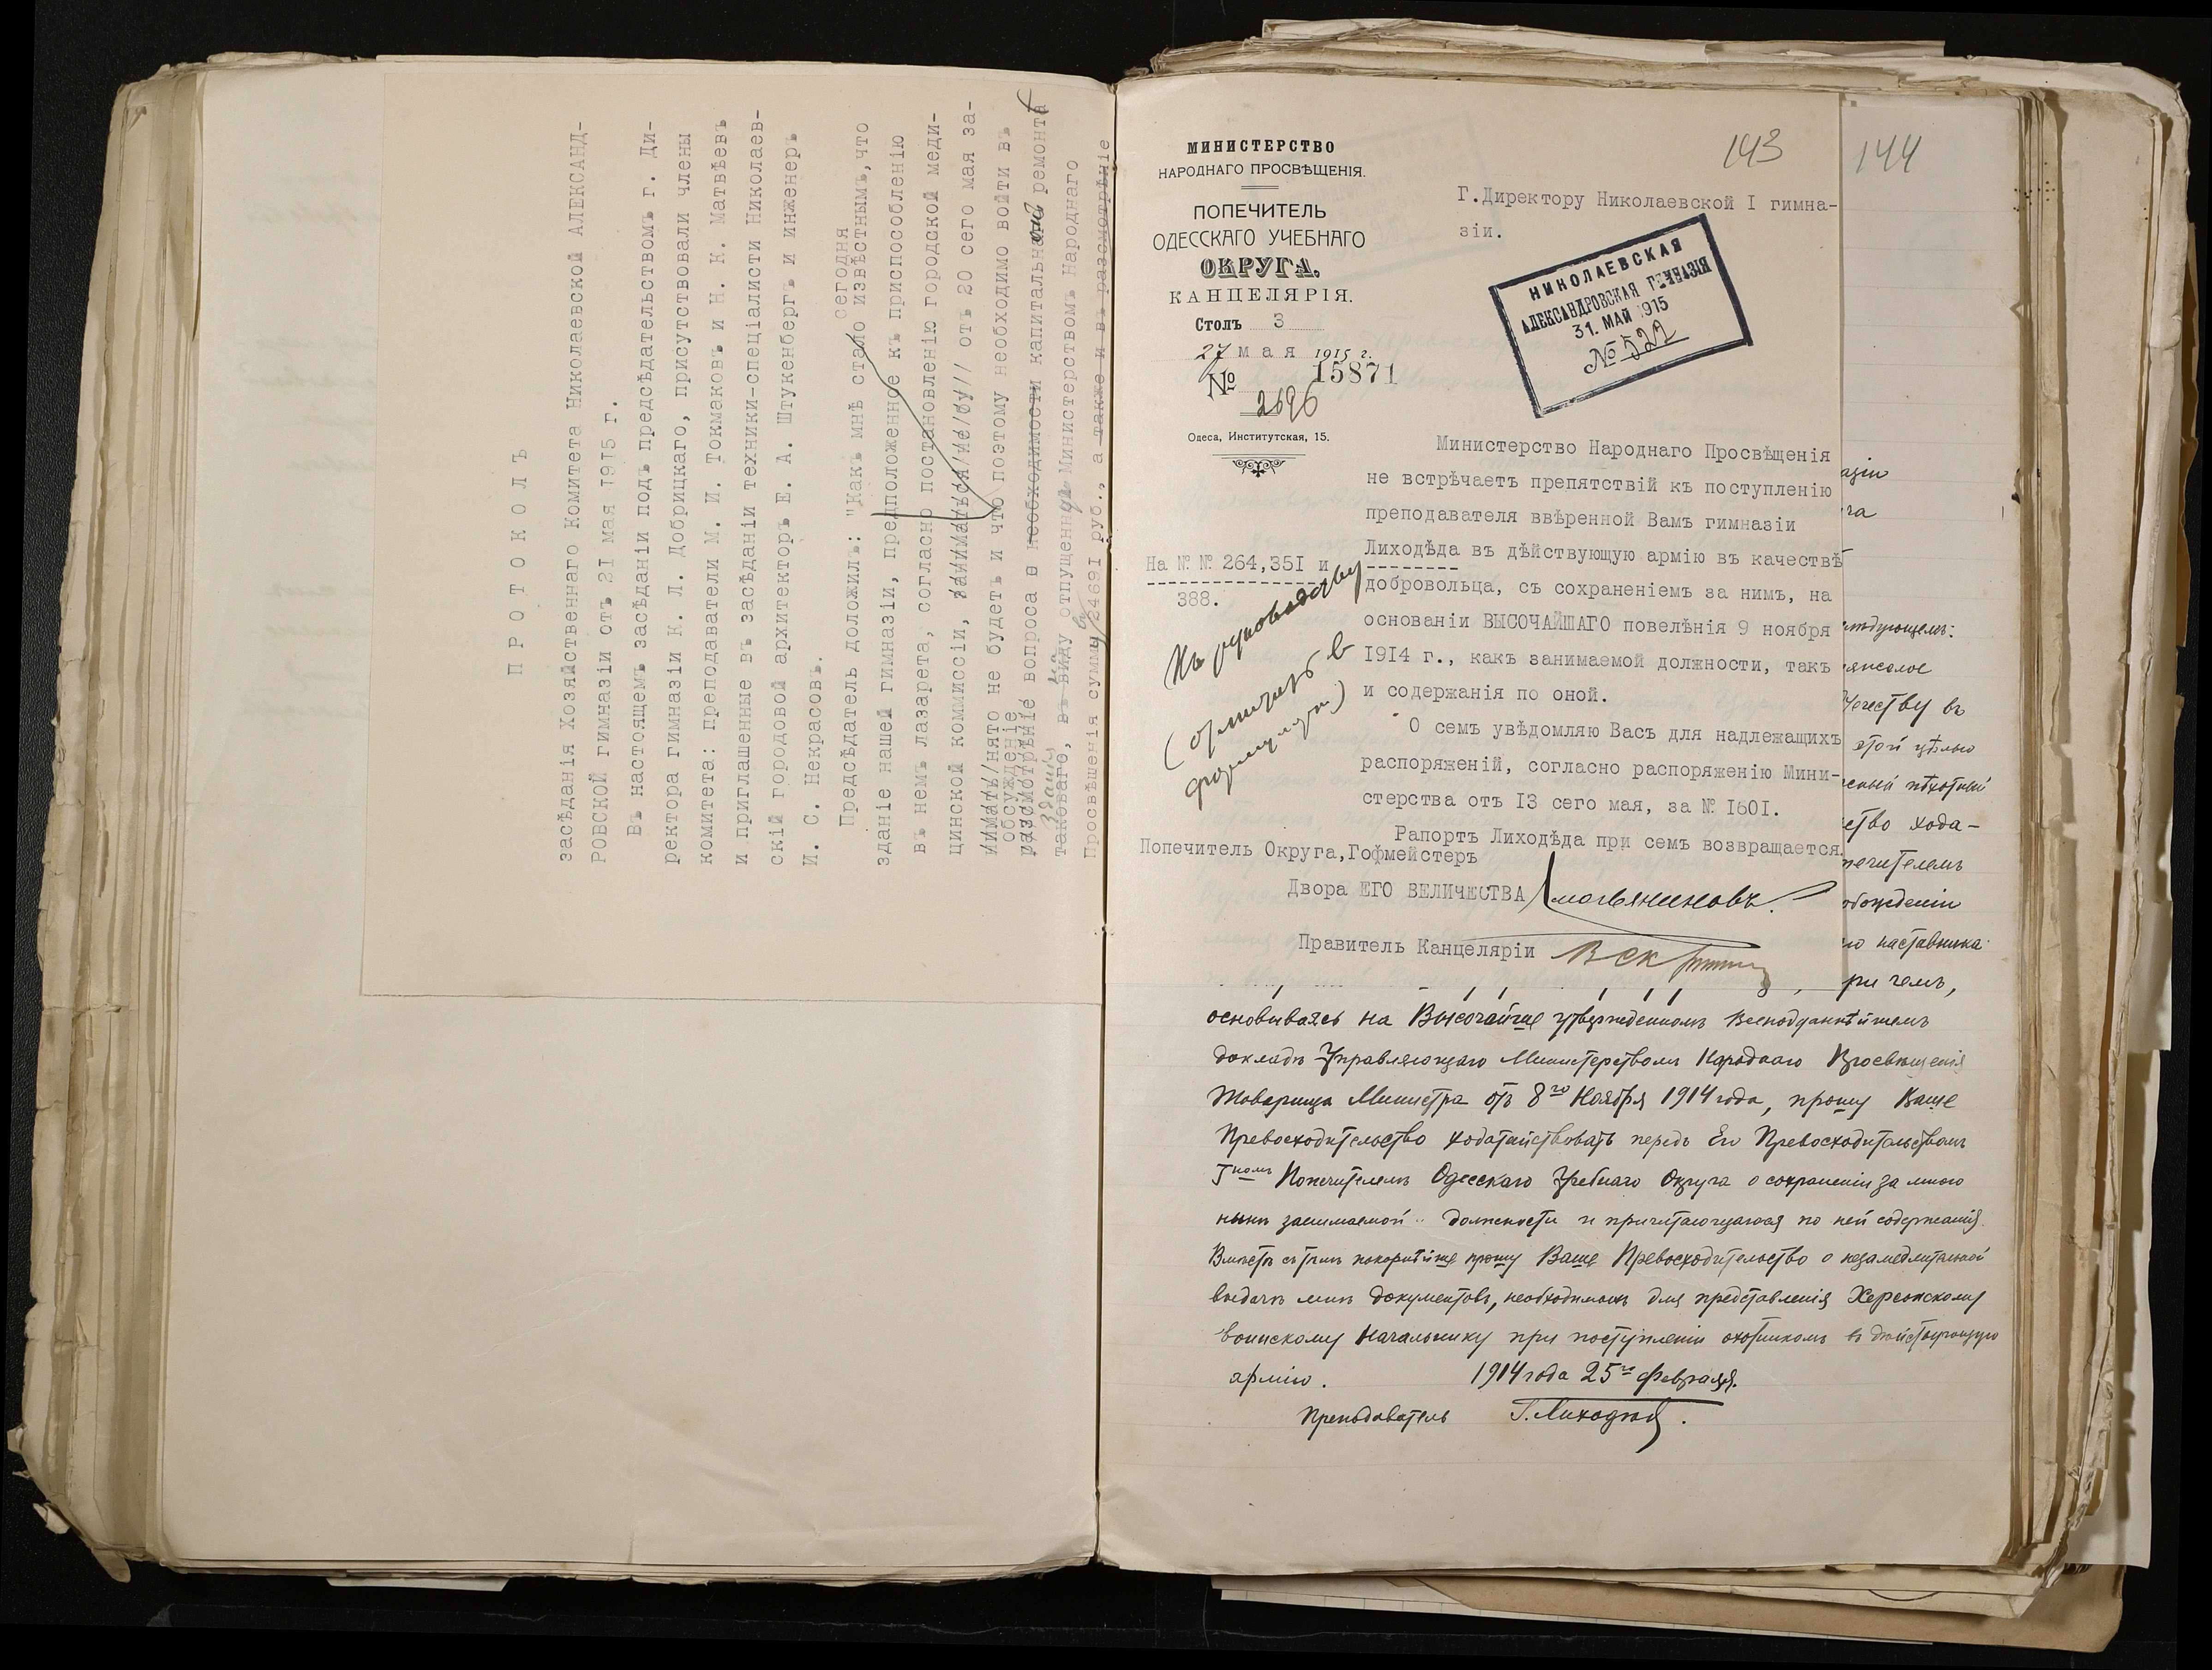 П Р О Т О К О Л Ъ
засѣданія Хозяйственнаго Комитета Николаевской АЛЕКСАНД-
РОВСКОЙ гимназіи отъ 21 мая 1915 г.
Въ настоящемъ засѣданіи подъ предсѣдательствомъ г. Ди-
ректора гимназіи К. Л. Добрицкаго, присутствовали члены
комитета: преподаватели М. И. Токмаковъ и Н. К. Матвѣевъ
и приглашенные въ засѣданіи техники-спеціалисти Николаев-
скій городовой архитекторъ Е. А. Штукенбергъ и инженеръ
И. С. Некрасовъ.
сегодня
Предсѣдатель доложилъ: "Какъ мнѣ стало извѣстнымъ, что
зданіе нашей гимназіи, предположенное къ приспособленію
въ немъ лазарета, согласно постановленію городской меди-
цинской коммиссіи, отъ 20 сего мая за-
нято не будетъ и что поэтому необходимо войти въ
обсужденіе
разсмотрѣніе вопроса о необходимости капитальнаго ремонта
зданія на
таковаго, въ виду отпущенную Министерствомъ Народнаго
Просвѣщенія суммы 24691 руб., а также и въ разсмотрѣніе
143
144
МИНИСТЕРСТВО
НАРОДНАГО ПРОСВѢЩЕНІЯ.
ПОПЕЧИТЕЛЬ
ОДЕССКАГО УЧЕБНАГО
ОКРУГА.
КАНЦЕЛЯРІЯ.
Столъ 3
27 мая 1915 г.
№ 15871
2696
Одеса, Институтская, 15.
Г.Директору Николаевской I гимна-
зіи.
НИКОЛАЕВСКАЯ
АЛЕКСАНДРОВСКАЯ ГИМНАЗІЯ
31. МАЙ 1915
№ 522
На №№ 264,351 и
388.
Къ руководству
(отмѣтить въ
формуляръ)
Министерство Народнаго Просвѣщенія
не встрѣчаетъ препятствій къ поступленію
преподавателя ввѣренной Вамъ гимназіи
Лиходѣда въ дѣйствующую армію въ качествѣ
добровольца, съ сохраненіемъ за нимъ, на
основаніи ВЫСОЧАЙШАГО повелѣнія 9 ноября
1914 г., какъ занимаемой должности, такъ
и содержанія по оной.
О семъ увѣдомляю Васъ для надлежащихъ
распоряженій, согласно распоряженію Мини-
стерства отъ 13 сего мая, за № 1601.
Рапортъ Лиходѣда при семъ возвращается.
Попечитель Округа,Гофмейстеръ
Двора ЕГО ВЕЛИЧЕСТВА Смольяниновъ.
Правитель Канцеляріи
ство хода-
печителемъ
наставника
при чемъ,
основываясь на Высочайше утвержденномъ Всеподданнѣйшемъ
докладѣ Управляющаго Министерствомъ Народнаго Просвѣщенія
Товарища Министра отъ 8го Ноября 1914 года, прошу Ваше
Превосходительство ходатайствовать передъ Его Превосходительствомъ
Г-номъ Попечителемъ Одесскаго Учебнаго Округа о сохраненіи за мною
нынѣ занимаемой должности и причитающагося по ней содержанія.
Вмѣстѣ съ тѣмъ покорнѣйше прошу Ваше Превосходительство о незамедлительной
выдачѣ мнѣ документовъ, необходимыхъ для представленія Херсонскому
Воинскому Начальнику при поступленіи охотникомъ въ дѣйствующую
армію. 1914 года 25го Февраля.
Преподаватель Г. Лиходѣдъ.